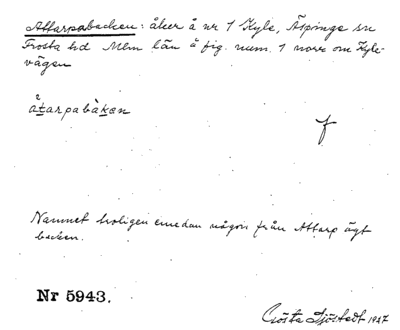 Attarpabacken: åker å nr 1 Kyle, Äspinge sn
Frosta hd Mlm län å fig. num. 1 norr om Kyle-
vägen
åtarpabaken
f
Namnet troligen emedan någon från Attarp ägt
backen.
Nr 5943.
Gösta Sjöstedt 1927